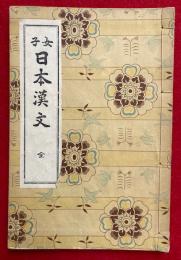 女子
日本漢文
全